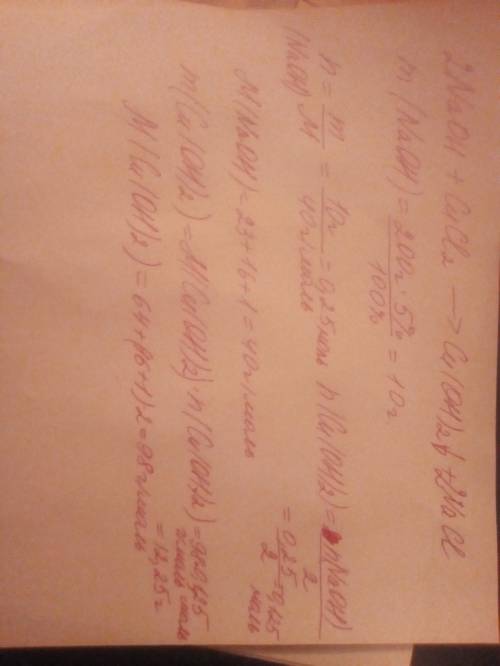 2NaOH + CuCl2 —> Cu(OH)2↓ + 2NaCl
m(NaOH) = 200г·5% / 100% = 10г
n(NaOH) = m / M = 10г / 40г/моль = 0,25моль n(Cu(OH)2) = n(NaOH) / 2 = 0,25 / 2 = 0,125 моль
M(NaOH) = 23+16+1 = 40г/моль
m(Cu(OH)2) = M(Cu(OH)2)·n(Cu(OH)2) = 98·0,125 г/моль моль = 12,25г
M(Cu(OH)2) = 64+(16+1)·2 = 98г/моль